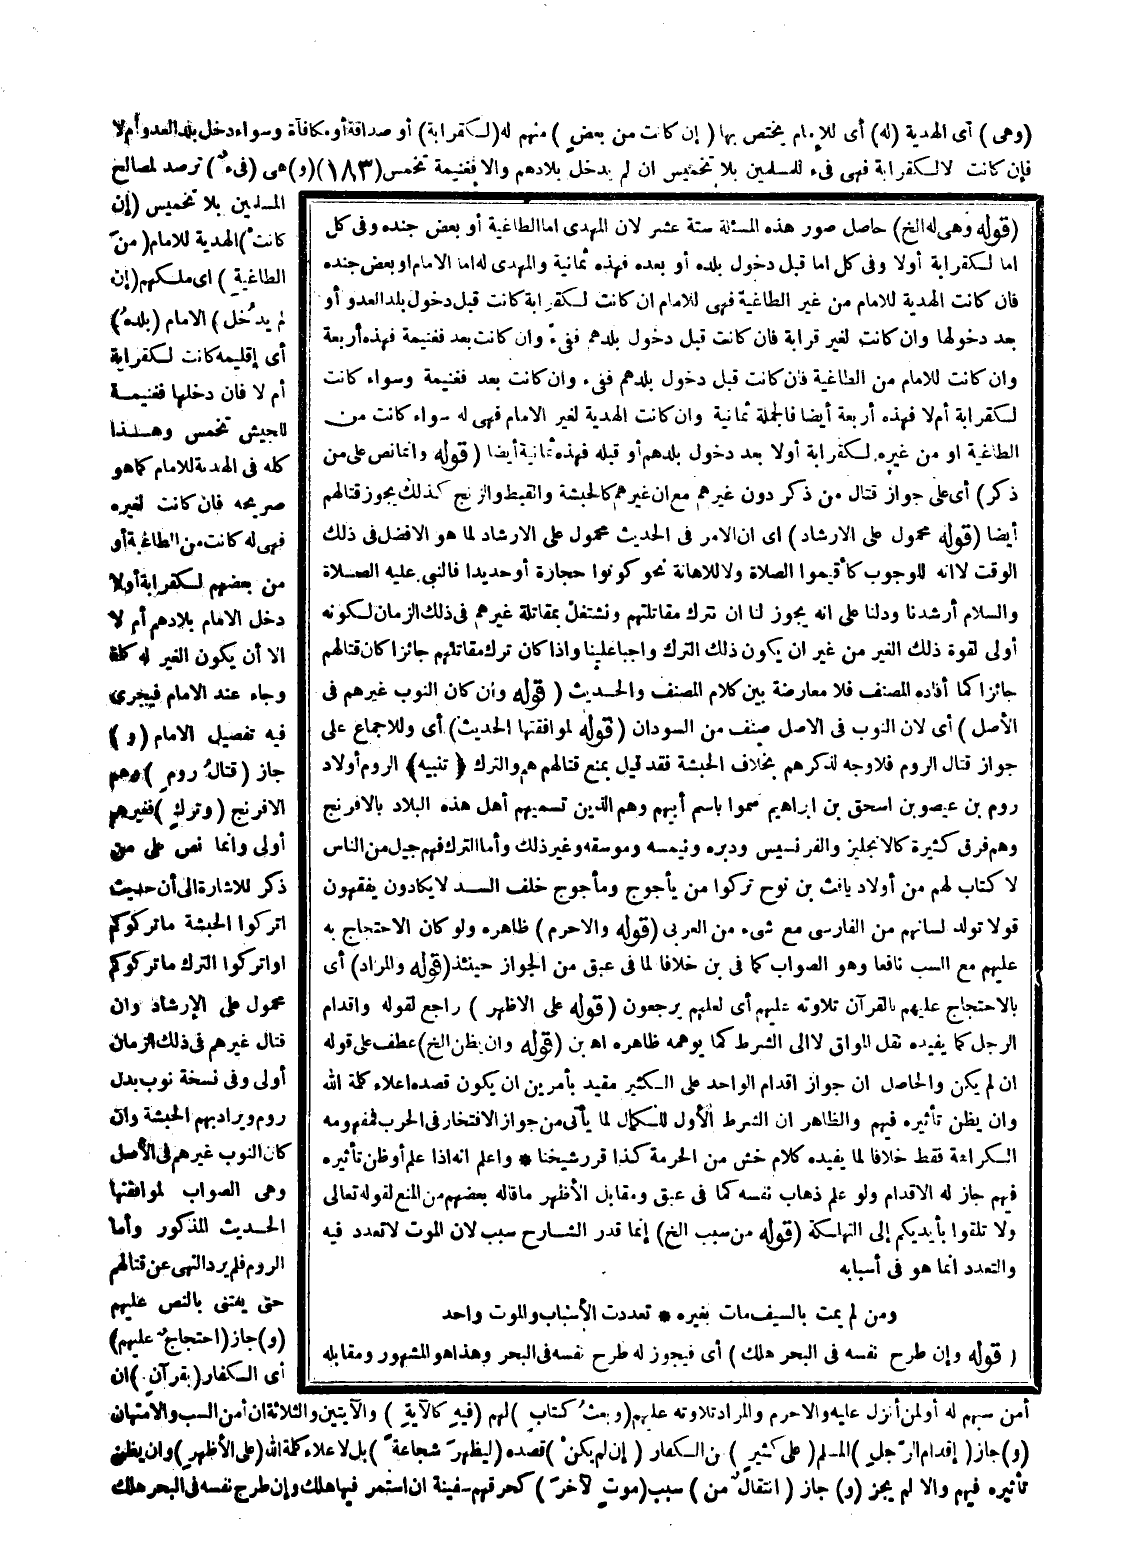 (وهى) أى الهدية (له) أى للإمام يختص بها (إن كانت من بعض) منهم له (لكقرابة) أو صداقة أو مكافأة وسواء دخل بلد العدو أم لا
فإن كانت لا لكقرابة فهى فىء للمسلمين بلا تخميس ان لم يدخل بلادهم والا فغنيمة تخمس (١٨٣) (و) هى (فىء) ترصد لمصالح
المسلمين بلا تخميس (إن
كانت) الهدية للامام (من
الطاغية) اى ملكهم (إن
لم يدخل) الامام (بلده)
أى إقليمه كانت لكقرابة
أم لا فان دخلها فغنيمة
للجيش تخمس وهذا
كله فى الهدية للامام كما هو
صريحه فان كانت لغيره
فهى له كانت من الطاغية أو
من بعضهم لكقرابة أولا
دخل الامام بلادهم أم لا
الا أن يكون الغير له كلمة
وجاه عند الامام فيجرى
فيه تفصيل الامام (و)
جاز (قتال روم) وهم
الافرنج (وترك) فغيرهم
أولى وانما نص على من
ذكر للاشارة الى أن حديث
اتركوا الحبشة ما تركوكم
او اتركوا الترك ما تركوكم
محمول على الإرشاد وان
قتال غيرهم فى ذلك الزمان
أولى وفى نسخة نوب بدل
روم ويراد بهم الحبشة وان
كان النوب غيرهم فى الأصل
وهى الصواب لموافقتها
الحديث المذكور وأما
الروم فلم يرد النهى عن قتالهم
حتى يعتنى بالنص عليهم
(و) جاز (احتجاج عليهم)
أى الكفار (بقرآن) ان
(قوله وهى له الخ) حاصل صور هذه المسئلة ستة عشر لان المهدى اما الطاغية أو بعض جنده وفى كل
اما لكقرابة أولا وفى كل اما قبل دخول بلده أو بعده فهذه ثمانية والمهدى له اما الامام او بعض جنده
فان كانت الهدية للامام من غير الطاغية فهى للامام ان كانت لكقرابة كانت قبل دخول بلد العدو أو
بعد دخولها وان كانت لغير قرابة فان كانت قبل دخول بلدهم ففىء وان كانت بعد فغنيمة فهذه أربعة
وان كانت للامام من الطاغية فان كانت قبل دخول بلدهم ففىء وان كانت بعد فغنيمة وسواء كانت
لكقرابة أم لا فهذه أربعة أيضا فالجملة ثمانية وان كانت الهدية لغير الامام فهى له سواء كانت من
الطاغية او من غيره لكقرابة أولا بعد دخول بلدهم أو قبله فهذه ثمانية أيضا (قوله وانما نص على من
ذكر) أى على جواز قتال من ذكر دون غيرهم مع ان غيرهم كالحبشة والقبط والزنج كذلك يجوز قتالهم
أيضا (قوله محمول على الارشاد) اى ان الامر فى الحديث محمول على الارشاد لما هو الافضل فى ذلك
الوقت لا انه للوجوب كأقيموا الصلاة ولا للاهانة نحو كونوا حجارة أو حديدا فالنبى عليه الصلاة
والسلام أرشدنا ودلنا على انه يجوز لنا ان نترك مقاتلتهم ونشتغل بمقاتلة غيرهم فى ذلك الزمان لكونه
أولى لقوة ذلك الغير من غير ان يكون ذلك الترك واجبا علينا واذا كان ترك مقاتلتهم جائزا كان قتالهم
جائزا كما أفاده المصنف فلا معارضة بين كلام المصنف والحديث (قوله وأن كان النوب غيرهم فى
الأصل) أى لان النوب فى الاصل صنف من السودان (قوله لموافقتها الحديث) أى وللاجماع على
جواز قتال الروم فلا وجه لذكرهم بخلاف الحبشة فقد قيل يمنع قتالهم هم والترك (تنبيه) الروم أولاد
روم بن عيصو بن اسحق بن ابراهيم سموا باسم أبيهم وهم الذين تسميهم أهل هذه البلاد بالافرنج
وهم فرق كثيرة كالانجليز والفرنسيس ودبره ونيمسه وموسقه وغير ذلك وأما الترك فهم جيل من الناس
لا كتاب لهم من أولاد يافث بن نوح تركوا من يأجوج ومأجوج خلف السد لا يكادون يفقهون
قولا تولد لسانهم من الفارسى مع شىء من العربى (قوله والاحرم) ظاهره ولو كان الاحتجاج به
عليهم مع السب نافعا وهو الصواب كما فى بن خلافا لما فى عبق من الجواز حينئذ (قوله والمراد) أى
بالاحتجاج عليهم بالقرآن تلاوته عليهم أى لعلهم يرجعون (قوله على الاظهر) راجع لقوله واقدام
الرجل كما يفيده نقل المواق لا الى الشرط كما يوهمه ظاهره اه بن (قوله وان يظن الخ) عطف على قوله
ان لم يكن والحاصل ان جواز اقدام الواحد على الكثير مقيد بأمرين ان يكون قصده اعلاء كلمة الله
وان يظن تأثيره فيهم والظاهر ان الشرط الأول للكمال لما يأتى من جواز الافتخار فى الحرب فمفهومه
الكراهة فقط خلافا لما يفيده كلام خش من الحرمة كذا قرر شيخنا * واعلم انه اذا علم أو ظن تأثيره
فيهم جاز له الاقدام ولو علم ذهاب نفسه كما فى عبق ومقابل الأظهر ما قاله بعضهم من المنع لقوله تعالى
ولا تلقوا بأيديكم إلى التهلكة (قوله من سبب الخ) إنما قدر الشارح سبب لان الموت لا تعدد فيه
والتعدد انما هو فى أسبابه
ومن لم يمت بالسيف مات بغيره * تعددت الأسباب والموت واحد
(قوله وإن طرح نفسه فى البحر هلك) أى فيجوز له طرح نفسه فى البحر وهذا هو المشهور ومقابله
أمن سبهم له أو لمن أنزل عليه والاحرم والمراد تلاوته عليهم (وبعث كتاب) لهم (فيه كالآية) والآيتين والثلاثة ان أمن السب والامتهان
(و) جاز (إقدام الرجل) المسلم (على كثير) من الكفار (إن لم يكن) قصده (ليظهر شجاعة) بل لاعلاء كلمة الله (على الأظهر) وان يظن
تأثيره فيهم والا لم يجز (و) جاز (انتقال من) سبب (موت لآخر) كحرقهم سفينة ان استمر فيها هلك وإن طرح نفسه فى البحر هلك